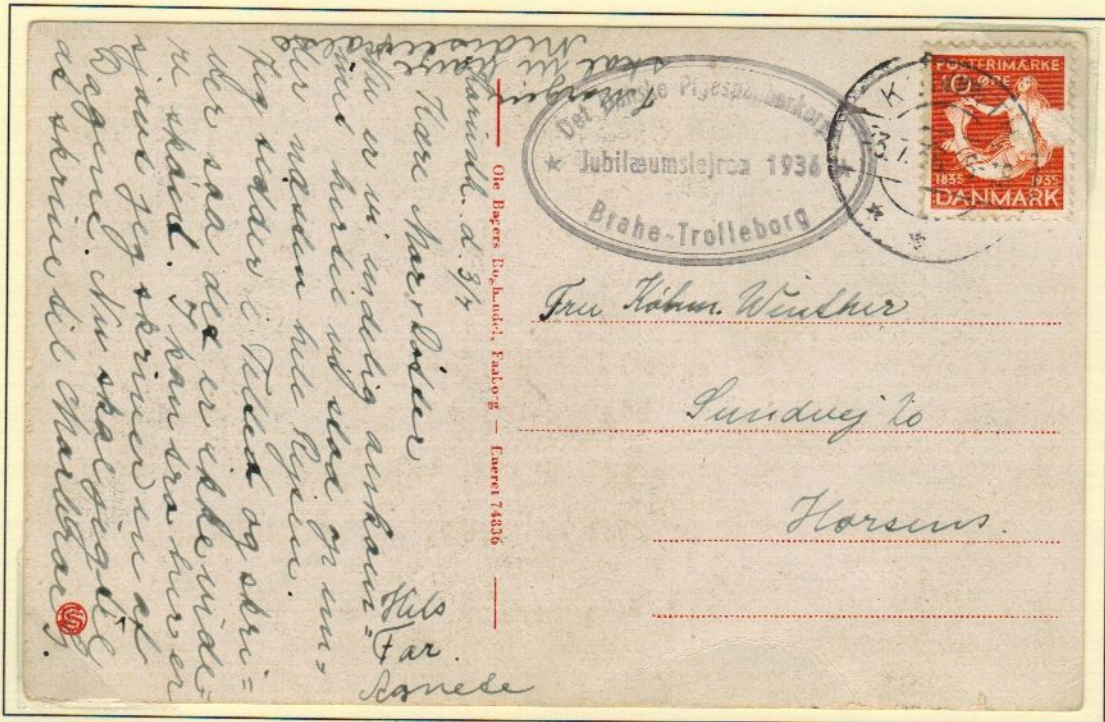 Korinth d. 3/7
Kære Mor & Søster
Nu er vi endelig ankom=
met hertil vi stod op un=
der næsten hele Rejsen.
Jeg sidder i Teltet og skri=
ver saa det er ikke vide=
re skønt. I kan tro her er
sjovt jeg skriver en af
Dagene. Nu skal jeg til
at skrive til
Hils
Far.
Agnete
I morgen
skal vi have
Ole Bagers Boghandel, Faaborg — Eneret 74836
Det Danske Pigespejderkorps
Jubilæumslejren 1936
Brahe-Trolleborg
POSTFRIMÆRKE
10 ØRE
1835 1935
DANMARK
Fru Købm. Winther
Sundvej 20
Horsens.